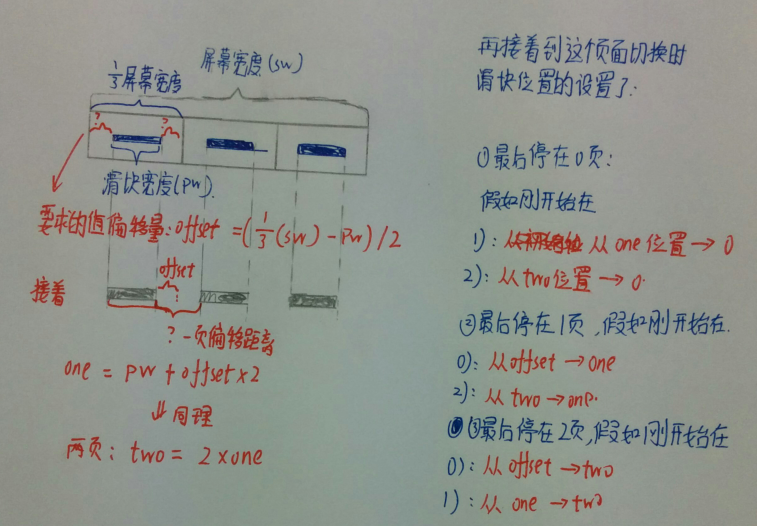 屏幕宽度(sw)
1/3屏幕宽度
?
?
滑块宽度(pw).
要求的值偏移量:offset =(1/3(sw)-pw)/2
offset
接着
?一页偏移距离
one = pw + offset×2
⇓同理
两页: two = 2×one
再接着到这个页面切换时
滑块位置的设置了:
①最后停在0页:
假如刚开始在
1): 从one位置→0
2): 从two位置→0.
②最后停在1页,假如刚开始在.
0): 从offset→one
2): 从two→one.
③最后停在2页,假如刚开始在
0): 从offset→two
1): 从 one →two